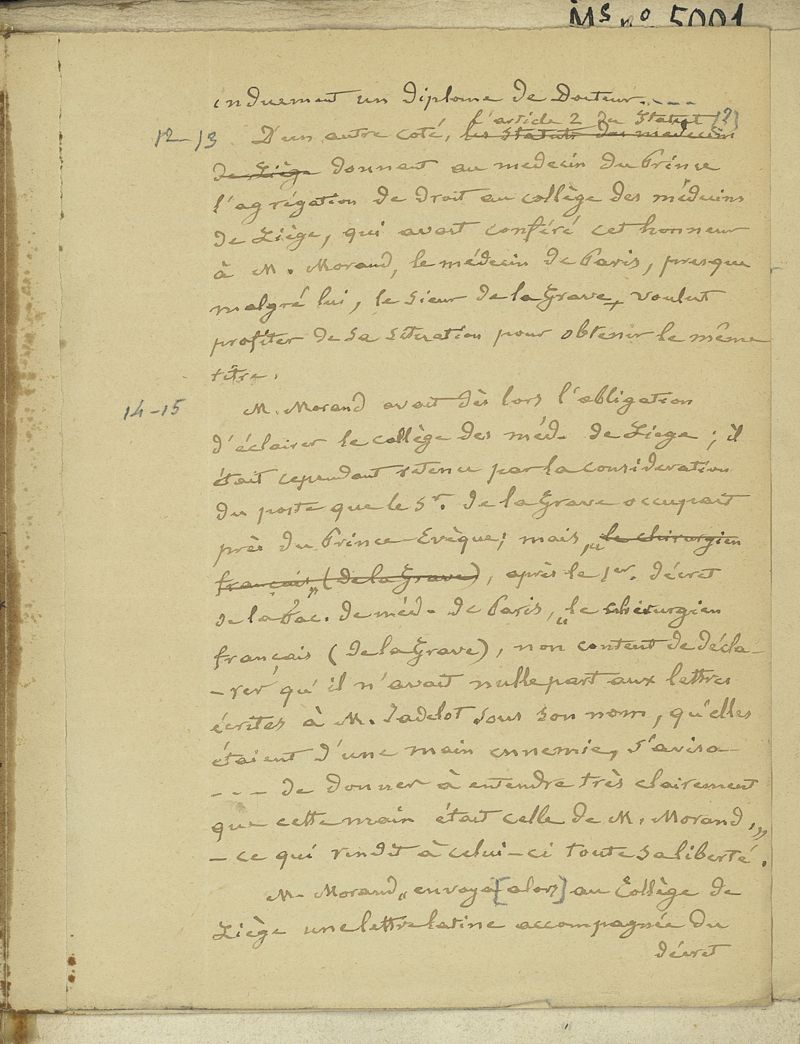 Ms no 5001
induement un diplome de Docteur.----
l'article 2 du Statut (?)
12-13 D'un autre coté, les Statuts des medecin
de Liège donnent au medecin du Prince
l'agrégation de droit au collège des médecins
de Liège, qui avait conféré cet honneur
à M. Morand, le médecin de Paris, presque
malgré lui, le sieur de la Grave, voulut
profiter de sa situation pour obtenir le même
titre.
14-15 M. Morand avait dès lors l'obligation
d'éclairer le collège des méd. de Liege ; il
était cependant retenu par la consideration
du poste que le Sr. de la Grave occupait
près du Prince-Evèque ; mais „le chirurgien
français„ (de la Grave), après le 1er. décret
de la Fac. de méd. de Paris, „le chirurgien
français (de la Grave), non content de décla-
-rer qu'il n'avait nulle part aux lettres
écrites à M. Jadelot sous son nom, qu'elles
étaient d'une main ennemie, s'avisa
--- de donner à entendre très clairement
que cette main était celle de M. Morand,„
- ce qui rendit à celui-ci toute sa liberté.
M. Morand „envoya [alors] au Collège de
Liège une lettre latine accompagnée du
décret